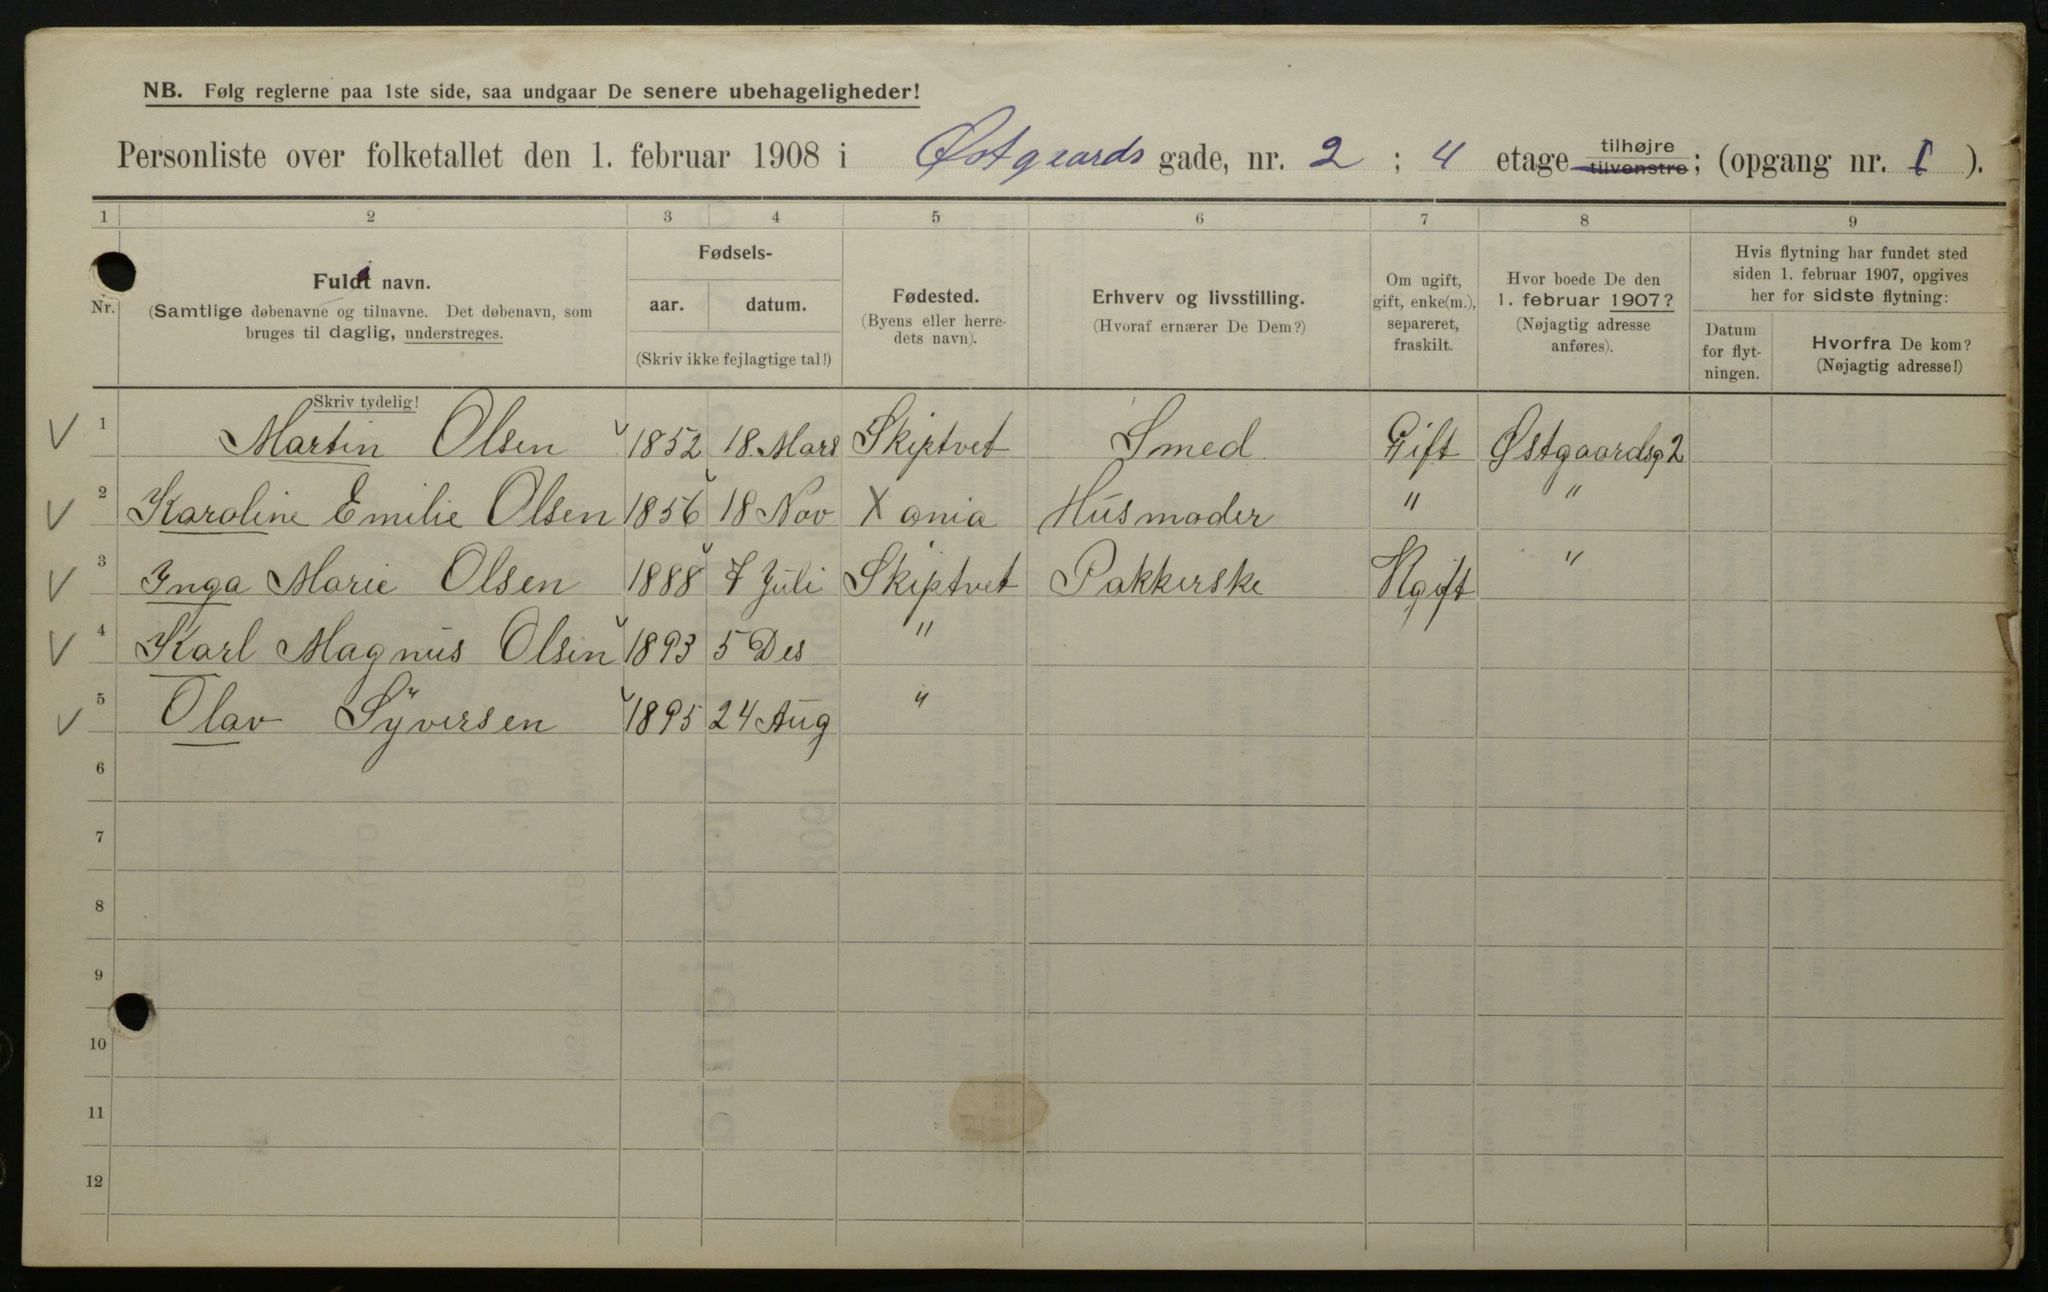 NB. Følg reglerne paa 1ste side, saa undgaar De senere ubehageligheder!
Personliste over folketallet den 1. februar 1908 i Østgaards gade, nr. 2 ; 4 etage tilhøjre tilvenstre; (opgang nr. 1 ).
1 2 3 4 5 6 7 8 9
Nr.
Fuldt navn.
(Samtlige døbenavne og tilnavne. Det døbenavn, som
bruges til daglig, understreges.
Skriv tydelig!
Fødsels-
aar. datum.
(Skriv ikke fejlagtige tal!)
Fødested.
(Byens eller herre-
dets navn).
Erhverv og livsstilling.
(Hvoraf ernærer De Dem?)
Om ugift,
gift, enke(m.),
separeret,
fraskilt.
Hvor boede De den
1. februar 1907?
(Nøjagtig adresse
anføres).
Hvis flytning har fundet sted
siden 1. februar 1907, opgives
her for sidste flytning:
Datum
for flyt-
ningen.
Hvorfra De kom?
(Nøjagtig adresse!)
1 Martin Olsen 1852 18. Mars Skiptvet Smed Gift Østgaardsg 2
2 Karoline Emilie Olsen 1856 18 Nov X ania Husmoder " "
3 Inga Marie Olsen 1888 7 Juli Skiptvet Pakkerske Ugift "
4 Karl Magnus Olsen 1893 5 Des "
5 Olav Syversen 1895 24 Aug "
6
7
8
9
10
11
12